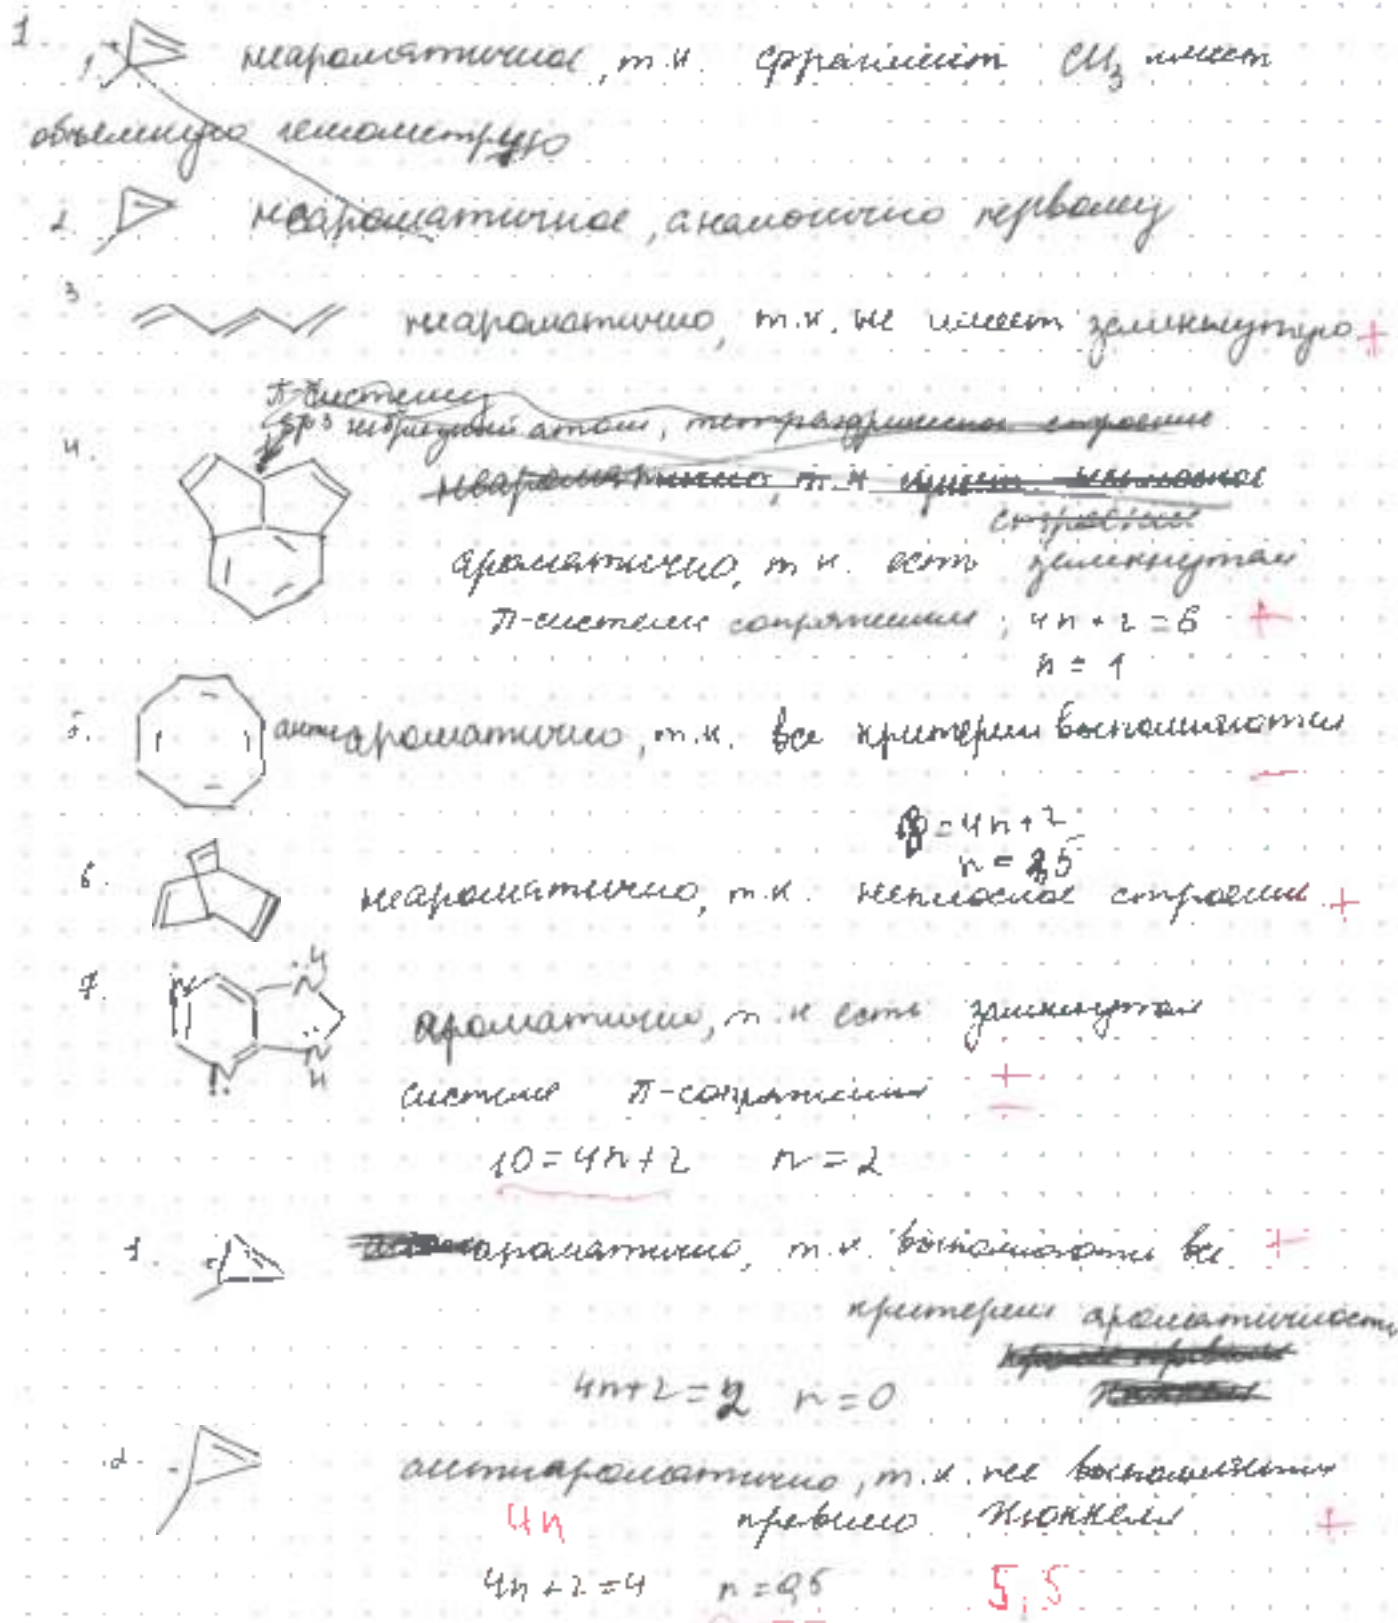 1. неароматичное, т.к. фрагмент CH3 имеет
объемную геометрую
2. неароматичное, аналогично первому
3. неароматично, т.к. не имеет замкнутую +
π-систему
sp3 гибридный атом, тетраэдрическое строение
4. неароматично, т.к. имеет неплоское
строение
ароматично, т.к. есть замкнутая
π-система сопряжения, 4n+2=6 +
n = 1
5. антиароматично, т.к. все критерии выполняются
-
8=4n+2
6. неароматично, т.к. неплоское строение +
7. N N N H H
ароматично, т.к есть замкнутая
система π-сопряжения ±
10=4n+2 n=2
1. ароматично, т.к. выполняются все +
критерии ароматичности
4n+2=2 n=0
2. антиароматично, т.к. не выполняется
4n правило Хюккеля +
4n+2=4 n=0,5 5,5